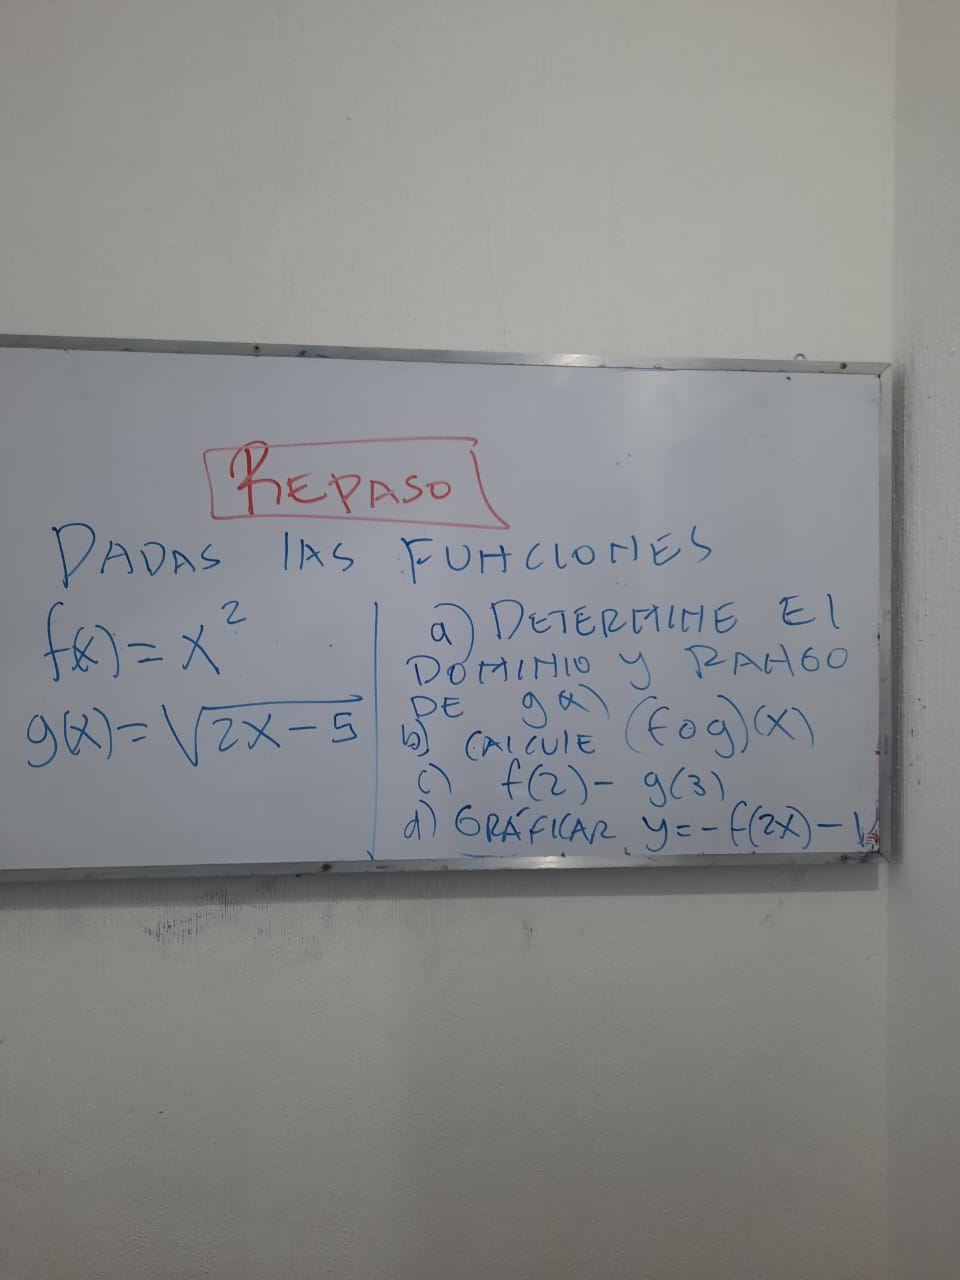 REPASO
DADAS lAS FUNCIONES
f(x) = x²
g(x) = √2x-5
a) DETERMINE El
DOMINIO y RANGO
DE g(x)
b) CALCULE (fog)(x)
c) f(2) - g(3)
d) GRÁFICAR y = -f(2x) - 1